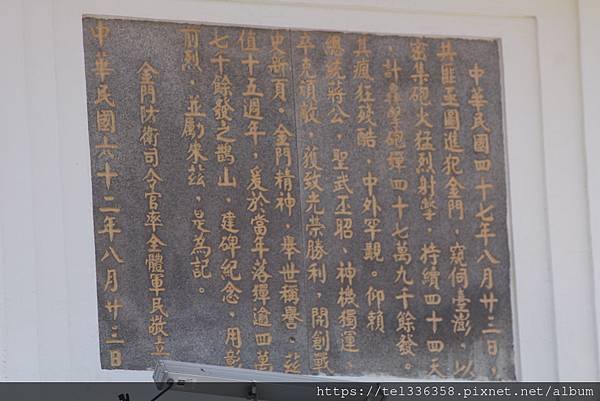 中華民國四十七年八月廿三日，
共匪妄圖進犯金門，窺伺臺澎，以
密集砲火猛烈射擊，持續四十四天
，計轟擊砲彈四十七萬九千餘發。
其瘋狂殘酷，中外罕覩。仰賴
總統蔣公，聖武丕昭，神機獨運
卒克頑敵，獲致光榮勝利，開創戰
史新頁。金門精神，舉世稱譽。茲
值十五週年，爰於當年落彈逾四萬
七千餘發之鵲山，建碑紀念，用彰
前烈，並勵來茲，是為記。
金門防衛司令官率全體軍民敬立
中華民國六十二年八月廿三日
https://tel336358.pixnet.net/album